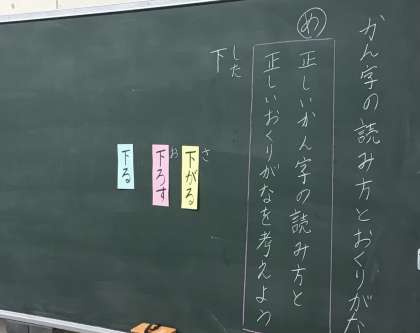 かん字の読み方とおくりがな
め
正しいかん字の読み方と
正しいおくりがなを考えよう
した
下
さ
下がる
お
下ろす
下る